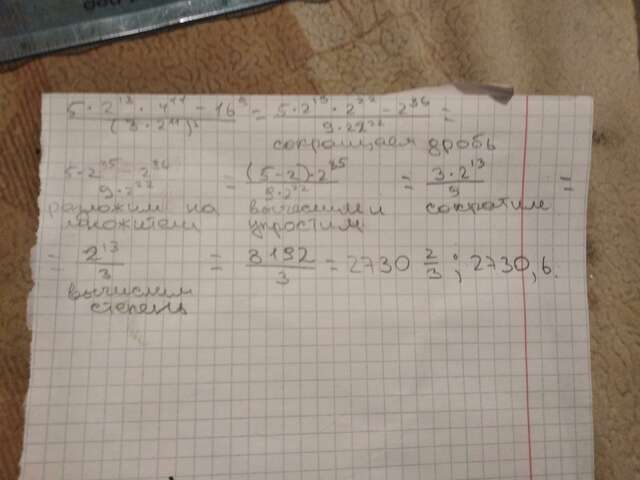 5·2¹³·4¹¹ - 16⁹ / (3·2¹¹)² = 5·2¹³·2²² - 2³⁶ / 9·2²² =
сокращаем дробь
5·2³⁵ - 2³⁶ / 9·2²² = (5-2)·2³⁵ / 9·2²² = 3·2¹³ / 9 =
разложим на вычислим и сократим
множители упростим
= 2¹³ / 3 = 8192 / 3 = 2730 2/3; 2730,6.
вычислим
степень